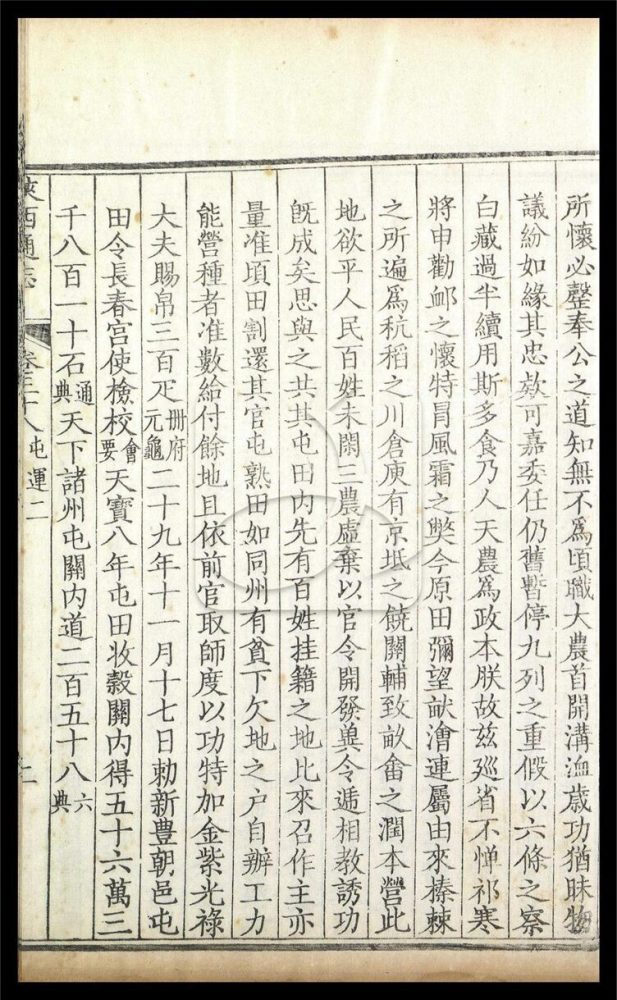 所懷必罄奉公之道知無不爲頃職大農首開溝洫歲功猶昧物
議紛如緣其忠欵可嘉委任仍舊暫停九列之重假以六條之察
白藏過半續用斯多食乃人天農爲政本朕故兹廵省不憚祁寒
將申勸卹之懷特冒風霜之弊今原田彌望畎澮連屬由來榛棘
之所遍爲秔稻之川倉庾有京坻之饒關輔致畝畬之潤本營此
地欲平人民百姓未閑三農虛棄以官令開發兾令遞相教誘功
旣成矣思與之共其屯田内先有百姓挂籍之地比來召作主亦
量准頃田割還其官屯熟田如同州有貧下欠地之户自辦工力
能營種者准數給付餘地且依前官取師度以功特加金紫光祿
大夫賜帛三百疋冊府元龜二十九年十一月十七日勅新豐朝邑屯
田令長春宫使檢校會要天寶八年屯田收榖關内得五十六萬三
千八百一十石通典天下諸州屯關内道二百五十八六典
陝西通志 卷三十八屯運二 二